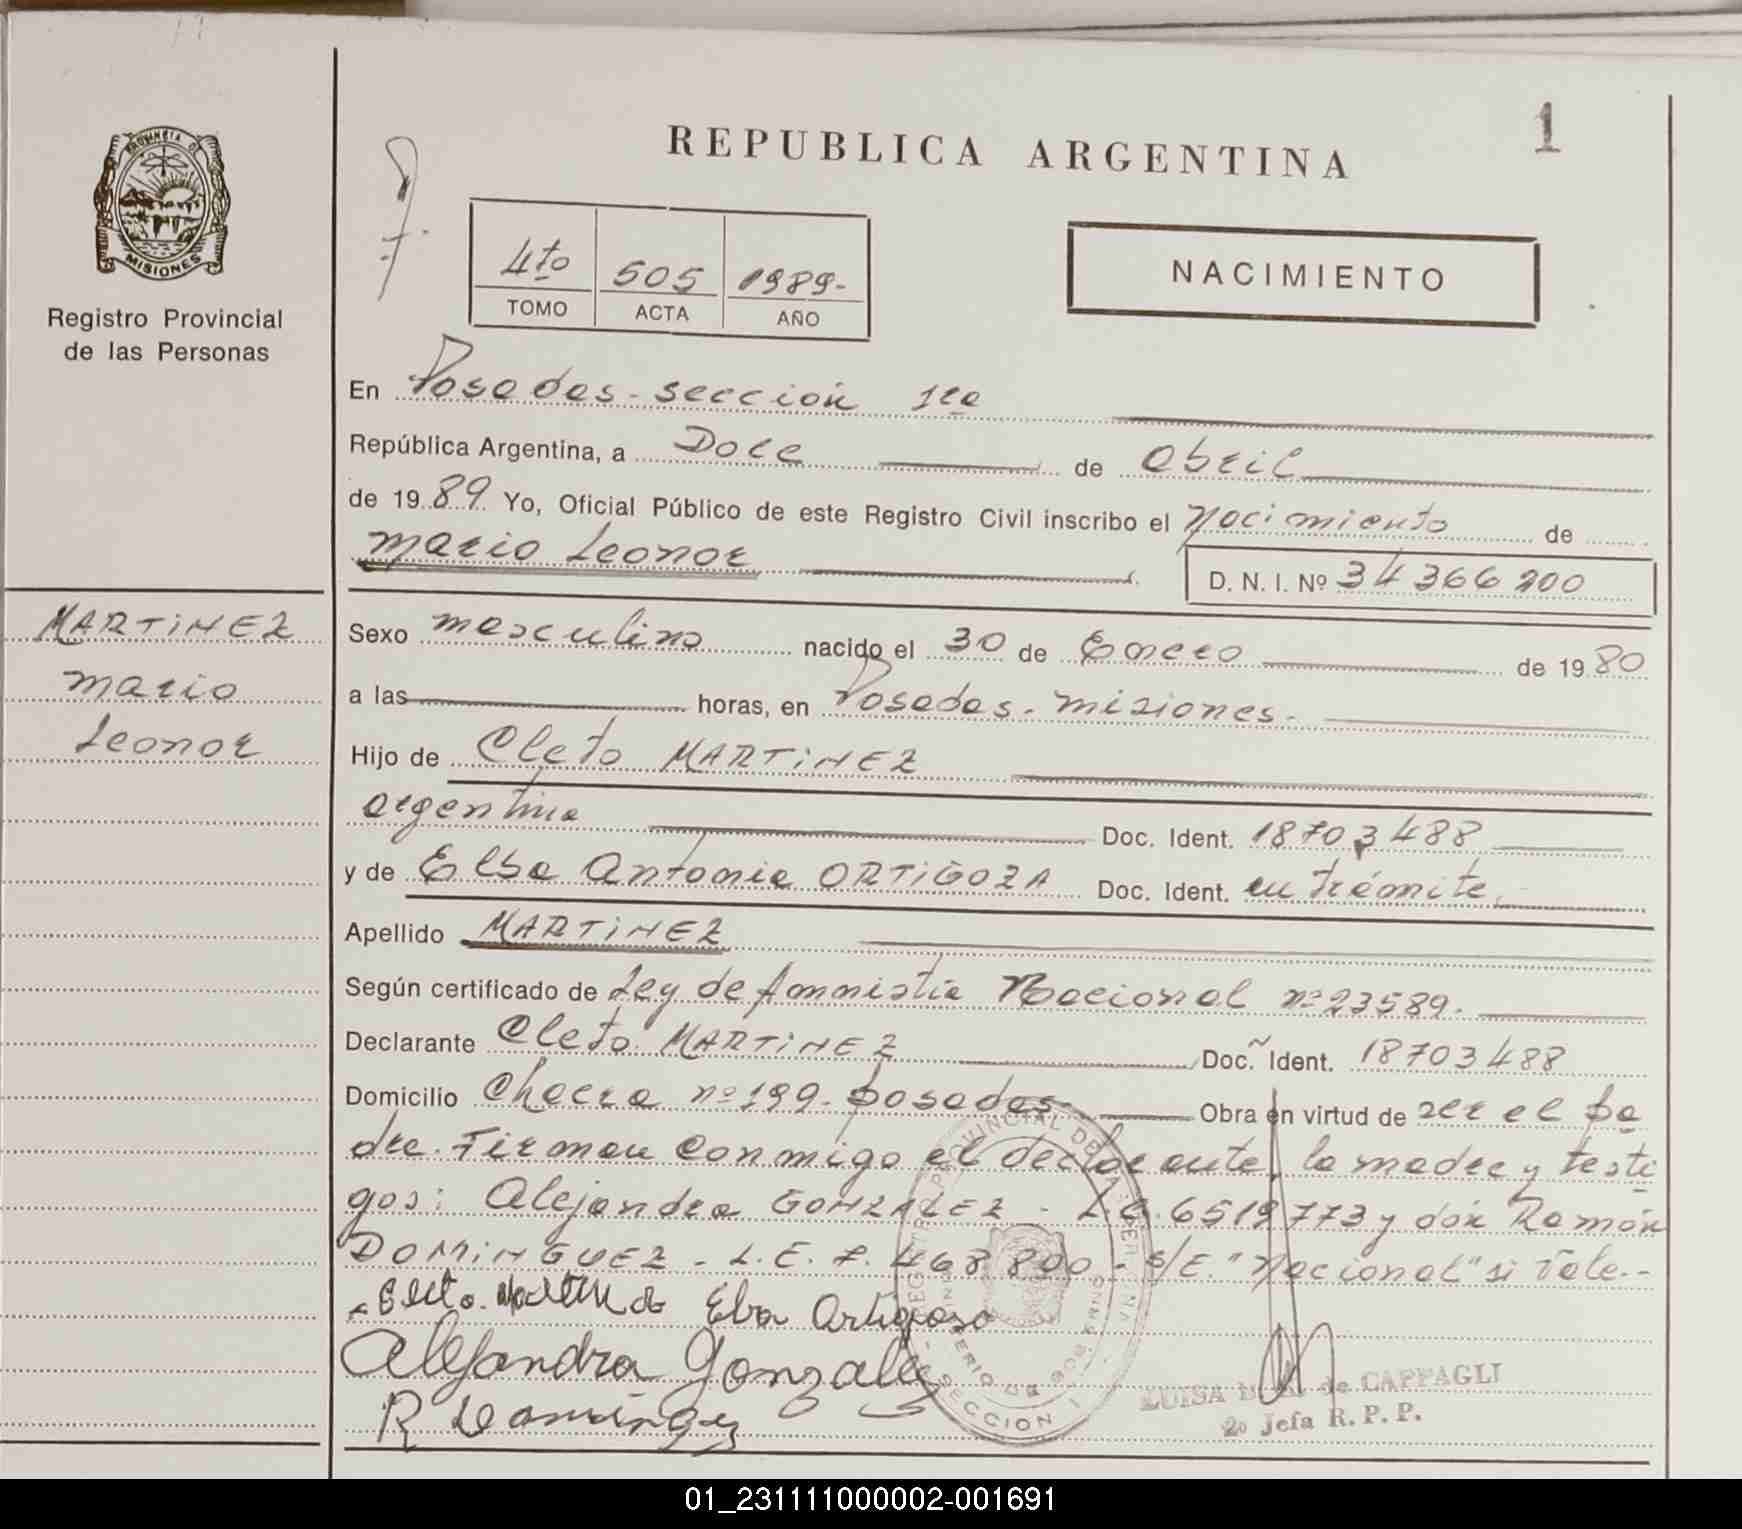 1
REPUBLICA ARGENTINA
PROVINCIA DE
MISIONES
Registro Provincial
de las Personas
4to 505 1989-
TOMO ACTA AÑO
NACIMIENTO
En Posadas - sección 1ra
República Argentina, a Doce de abril
de 1989 Yo, Oficial Público de este Registro Civil inscribo el Nacimiento de
Mario Leonor
D. N. I. Nº 34366200
MARTINEZ
Mario
Leonor
Sexo masculino nacido el 30 de Enero de 1980
a las horas, en Posadas - Misiones -
Hijo de Cleto MARTINEZ
argentina Doc. Ident. 18703488
y de Elba Antonia ORTIGOZA Doc. Ident. en trámite.
Apellido MARTINEZ
Según certificado de Ley de Amnistía Nacional nº 23589.
Declarante Cleto MARTINEZ Doc. Ident. 18703488
Domicilio Chacra nº 199 - posadas Obra en virtud de ser el pa
dre. Firman conmigo el declarante, la madre y testi
gos: Alejandra GONZALEZ - L.C. 6519773 y don Ramón
DOMINGUEZ - L.E. 7.468.890 - S/E. "Nacional" si vale.-
Elba Ortigoso
Alejandra Gonzalez
R Dominguez
REGISTRO PROVINCIAL DE LAS
SECCION 1
LUISA de CAFFAGLI
2º Jefa R. P. P.
01_231111000002-001691